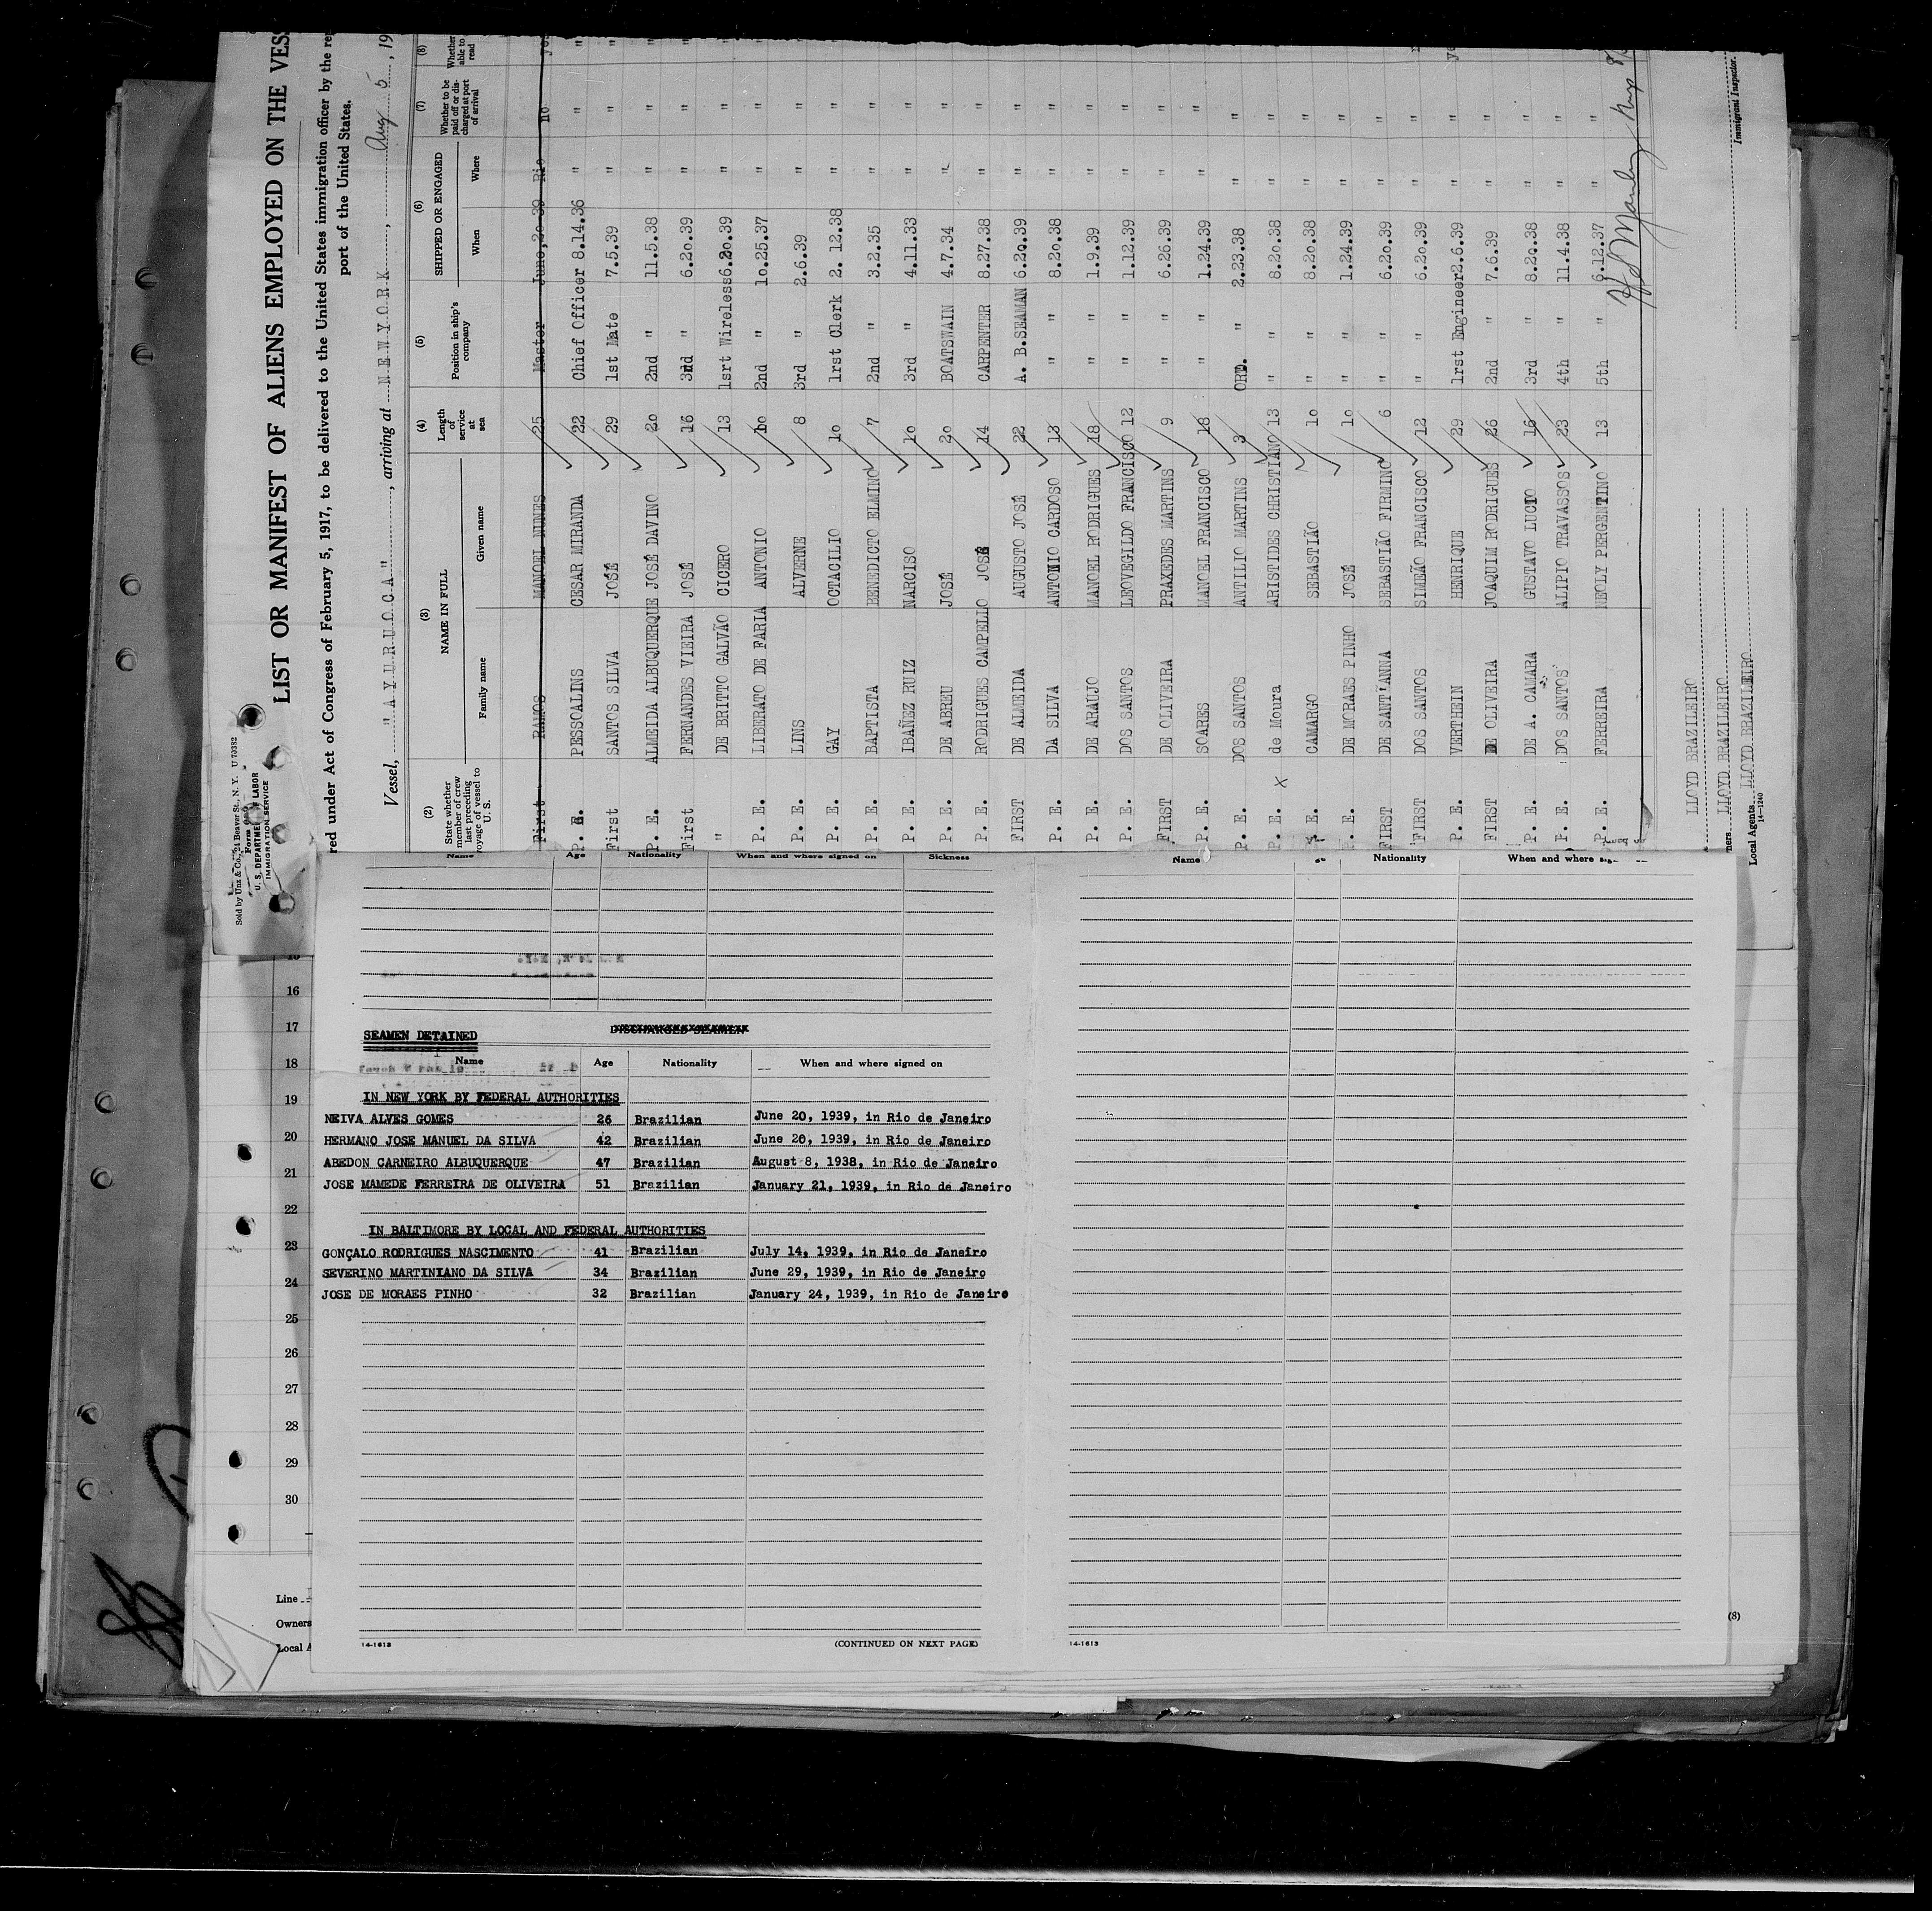 LIST OR MANIFEST OF ALIENS EMPLOYED ON THE VES
red under Act of Congress of February 5, 1917, to be delivered to the United States immigration officer by the re
port of the United States.
Sold by Unz & Co., 24 Beaver St., N. Y. U 70382
U. S. DEPARTMENT OF LABOR
IMMIGRATION SERVICE
Vessel, "AYURUOCA", arriving at NEW YORK, Aug 5, 19
(2) State whether member of crew last preceding voyage of vessel to U. S. (3) NAME IN FULL Family name Given name (4) Length of service at sea (5) Position in ship's company (6) SHIPPED OR ENGAGED When Where (7) Whether to be paid off or discharged at port of arrival (8) Whether able to read
First RAMOS MANOEL NUNES 25 Master June,20 39 Rio no
P. E. PESSOALINS CESAR MIRANDA 22 Chief Officer 8.14.36 " " "
First SANTOS SILVA JOSÉ 29 1st Mate 7.5.39 " " "
P. E. ALMEIDA ALBUQUERQUE JOSÉ DAVINO 20 2nd " 11.5.38 " " "
First FERNANDES VIEIRA JOSÉ 16 3nd " 6.20.39 " " "
" DE BRITTO GALVÃO CICERO 13 1srt Wireless 6.20.39 " " "
P. E. LIBERATO DE FARIA ANTONIO 10 2nd " 10.25.37 " " "
P. E. LINS ALVERNE 8 3rd " 2.6.39 " " "
P. E. GAY OCTACILIO 10 1rst Clerk 2. 12.38 " " "
P. E. BAPTISTA BENEDICTO ELMINO 7 2nd " 3.2.35 " " "
P. E. IBAÑEZ RUIZ NARCISO 10 3rd " 4.11.33 " " "
P. E. DE ABREU JOSÉ 20 BOATSWAIN 4.7.34 " " "
P. E. RODRIGUES CAMPELLO JOSÉ 14 CARPENTER 8.27.38 " " "
FIRST DE ALMEIDA AUGUSTO JOSÉ 22 A. B.SEAMAN 6.20.39 " " "
P. E. DA SILVA ANTONIO CARDOSO 13 " " 8.20.38 " " "
P. E. DE ARAUJO MANOEL RODRIGUES 18 " " 1.9.39 " " "
P. E. DOS SANTOS LEOVEGILDO FRANCISCO 12 " " 1.12.39 " " "
FIRST DE OLIVEIRA PRAXEDES MARTINS 9 " " 6.26.39 " " "
P. E. SOARES MANOEL FRANCISCO 18 " " 1.24.39 " "
P. E. DOS SANTOS ANTILIO MARTINS 3 ORD. " 2.23.38 " "
P. E. X de Moura ARISTIDES CHRISTIANO 13 " " 8.20.38 " "
P. E. CAMARGO SEBASTIÃO 10 " " 8.20.38 " "
P. E. DE MORAES PINHO JOSÉ 10 " " 1.24.39 " "
FIRST DE SANT'ANNA SEBASTIÃO FIRMINO 6 " " 6.20.39 " "
FIRST DOS SANTOS SIMEÃO FRANCISCO 12 " " 6.20.39 " "
P. E. VERTHEIN HENRIQUE 29 1rst Engineer 2.6.39 " "
FIRST DE OLIVEIRA JOAQUIM RODRIGUES 26 2nd " 7.6.39 " "
P. E. DE A. CAMARA GUSTAVO LUCIO 16 3rd " 8.20.38 " "
P. E. DOS SANTOS ALIPIO TRAVASSOS 23 4th " 11.4.38 " "
P. E. FERREIRA NEOLY PERGENTINO 13 5th " 6.12.37 " "
LLOYD BRAZILEIRO
ners LLOYD BRAZILEIRO
Local Agents LLOYD BRAZILEIRO
14-1240
Immigrant Inspector.
Name Age Nationality When and where signed on Sickness
Name Nationality When and where sig
SEAMEN DETAINED
DISCHARGED SEAMEN
Name Age Nationality When and where signed on
IN NEW YORK BY FEDERAL AUTHORITIES
NEIVA ALVES GOMES 26 Brazilian June 20, 1939, in Rio de Janeiro
HERMANO JOSE MANUEL DA SILVA 42 Brazilian June 20, 1939, in Rio de Janeiro
ABEDON CARNEIRO ALBUQUERQUE 47 Brazilian August 8, 1938, in Rio de Janeiro
JOSE MAMEDE FERREIRA DE OLIVEIRA 51 Brazilian January 21, 1939, in Rio de Janeiro
IN BALTIMORE BY LOCAL AND FEDERAL AUTHORITIES
GONÇALO RODRIGUES NASCIMENTO 41 Brazilian July 14, 1939, in Rio de Janeiro
SEVERINO MARTINIANO DA SILVA 34 Brazilian June 29, 1939, in Rio de Janeiro
JOSE DE MORAES PINHO 32 Brazilian January 24, 1939, in Rio de Janeiro
14-1613
(CONTINUED ON NEXT PAGE)
14-1613
(8)
16
17
18
19
20
21
22
23
24
25
26
27
28
29
30
Line
Owners
Local A